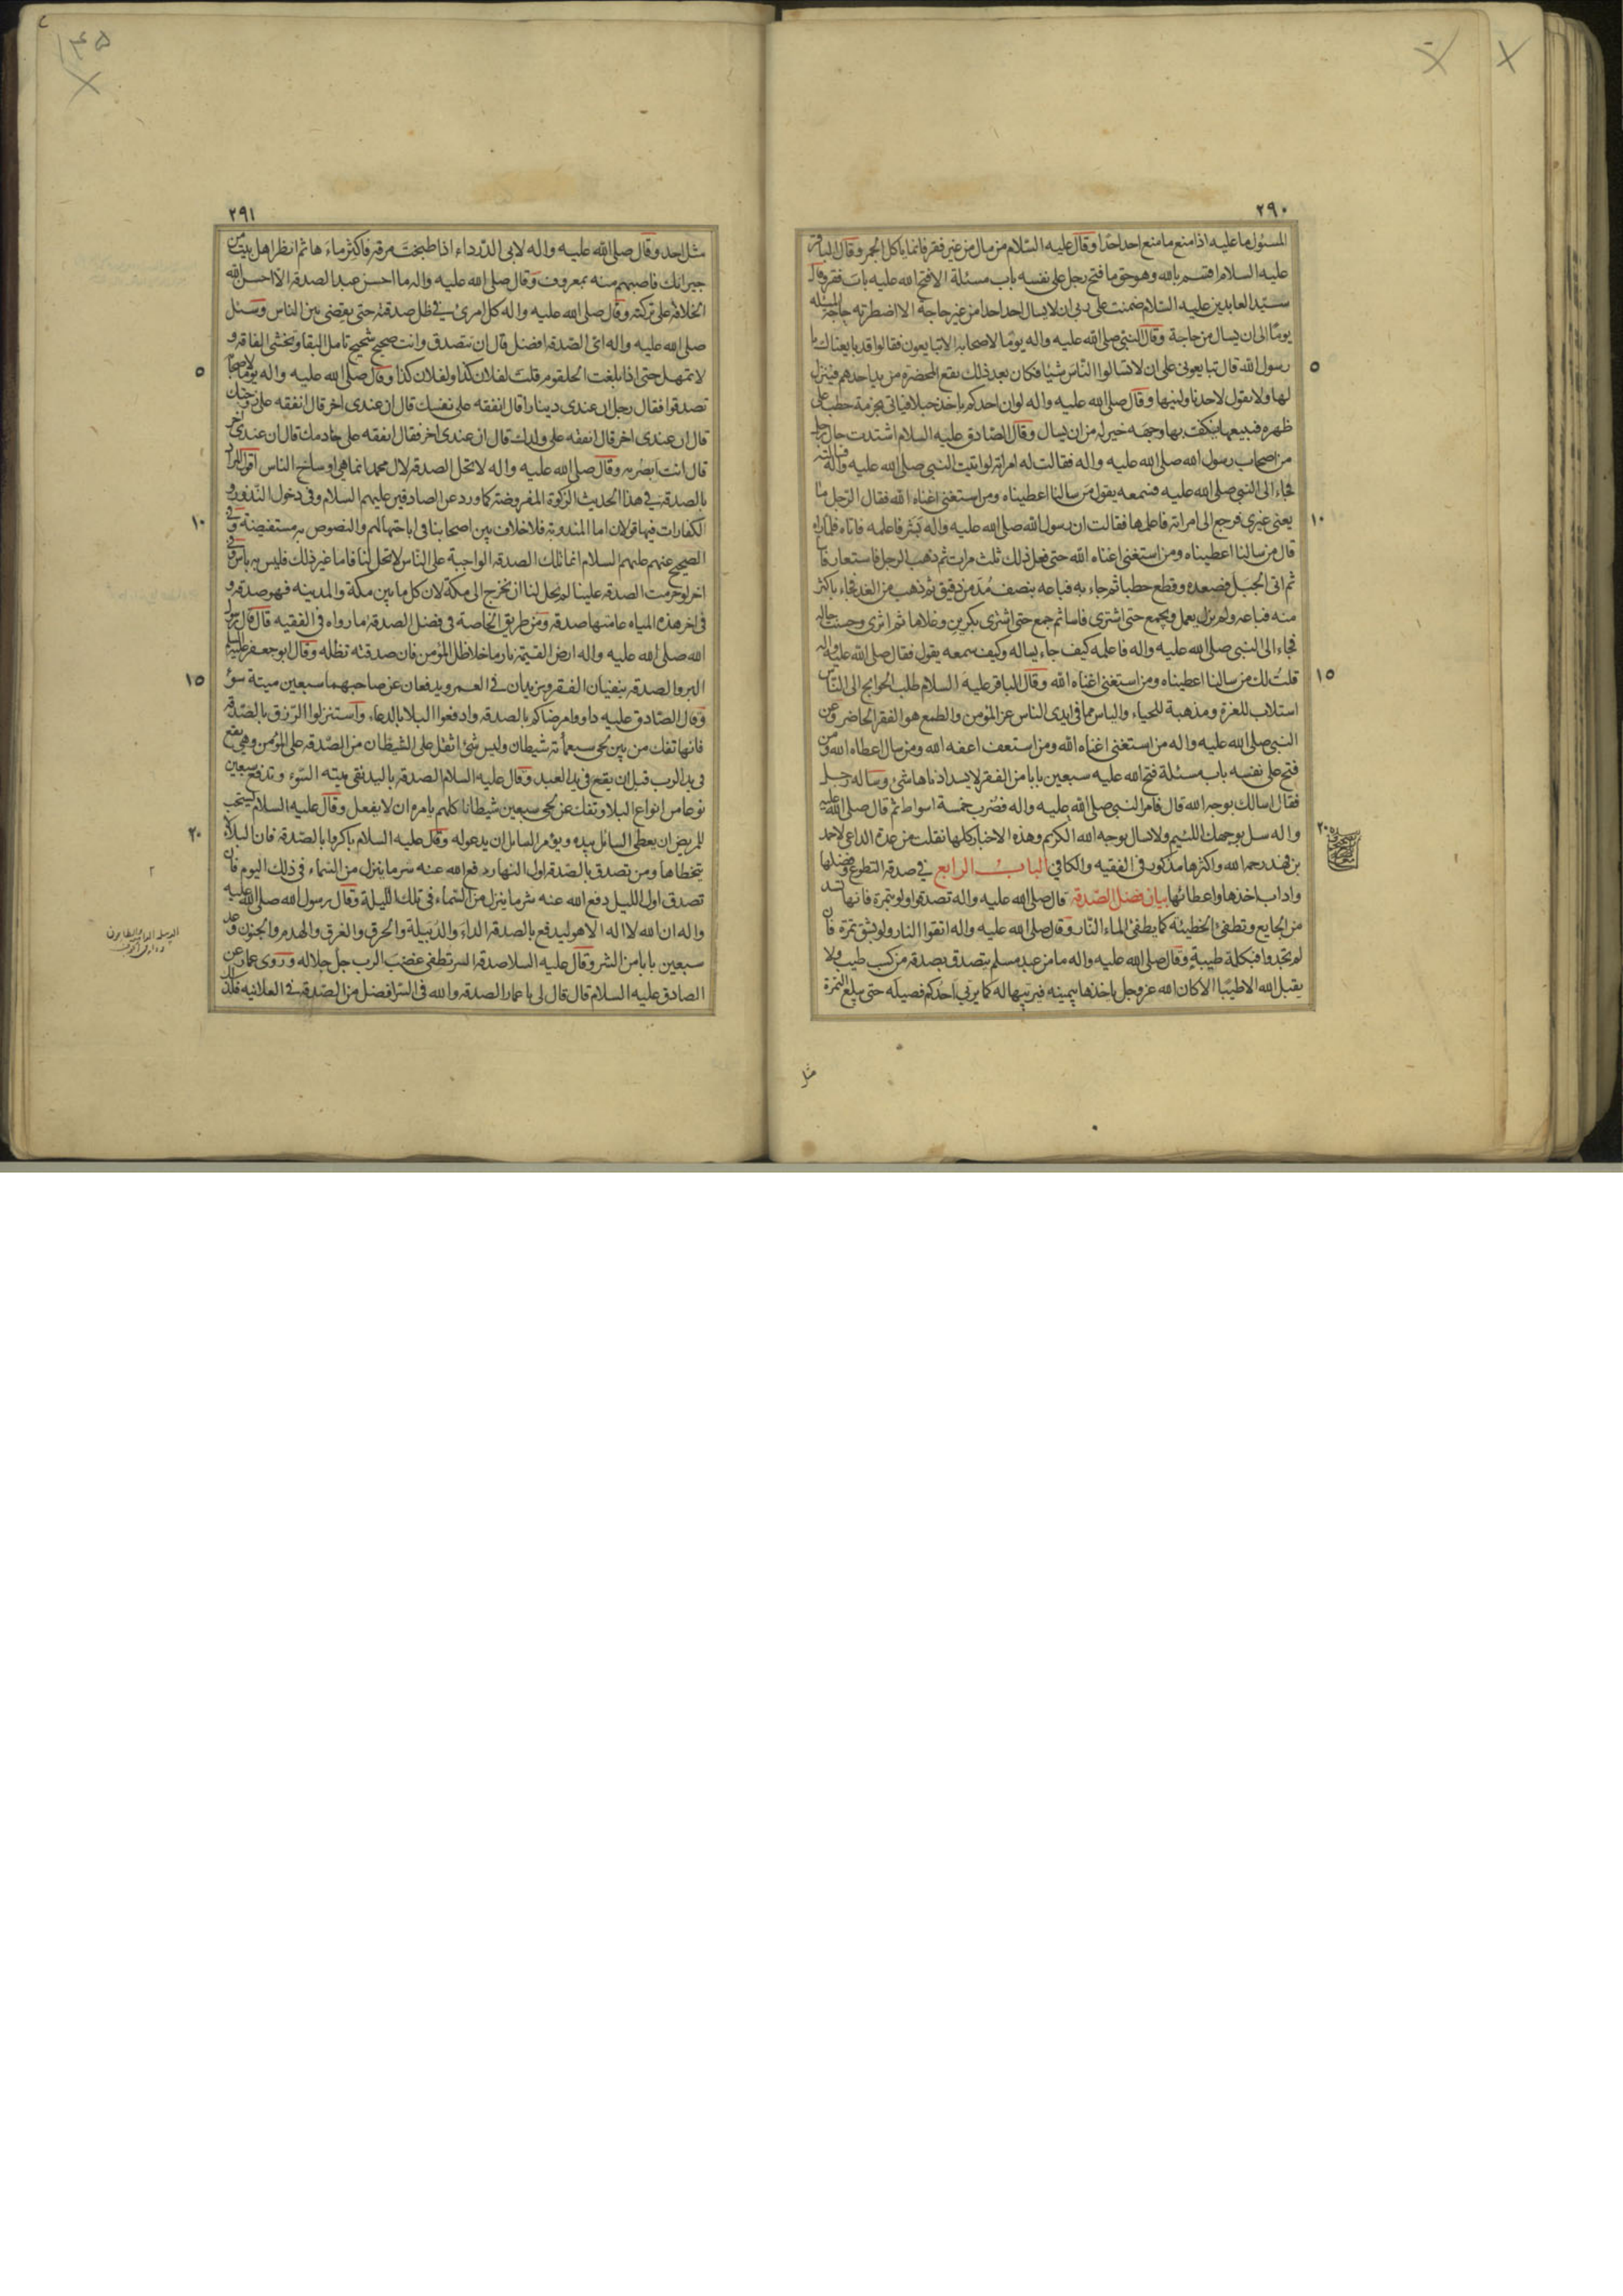 ٢٩٠
المسئول ما عليه اذا منع ما منع احد احدا وقال عليه السّلام من سال من غير فقر فانما ياكل الجمر وقال الباقر
عليه السلام اقسم بالله وهو حق ما فتح رجل على نفسه باب مسئلة الا فتح الله عليه باب فقر وقال
سيّد العابدين عليه السّلام ضمنت على ربى ان لا يسال احد احدا من غير حاجة الا اضطرته حاجة المسئلة
يوما الى ان يسال من حاجة وقال النبى صلى الله عليه واله يوما لاصحابه الا تبايعون فقالوا قد بايعناك يا
رسول الله قال تبايعونى على ان لا تسالوا النّاس شيئا فكان بعد ذلك تقع المخصرة من يد احدهم فينزل
لها ولا يقول لاحد ناولنيها وقال صلى الله عليه واله لو ان احدكم ياخذ حبلا فياتى بحزمة حطب على
ظهره فيبيعها فيكف بها وجهه خير له من ان يسال وقال الصّادق عليه السلام اشتدت حال رجل
من اصحاب رسول الله صلى الله عليه واله فقالت له امراته لو اتيت النبى صلى الله عليه واله فسالته
فجاء الى النبى صلى الله عليه فسمعه يقول من سالنا اعطيناه ومن استغنى اغناه الله فقال الرجل ما
يعنى غيرى فرجع الى امراته فاعلمها فقالت ان رسول الله صلى الله عليه واله بشر فاعلمه فاتاه فلما راه
قال من سالنا اعطيناه ومن استغنى اغناه الله حتى فعل ذلك ثلث مرات ثم ذهب الرجل فاستعار فاسا
ثم اتى الجبل فصعده وقطع حطبا ثم جاء به فباعه بنصف مُدّ من دقيق ثم ذهب من الغد فجاء باكثر
منه فباعه ولم يزل يعمل ويجمع حتى اشترى فاسا ثم جمع حتى اشترى بكرين وغلاما ثم اثرى وحسنت حاله
فجاء الى النبى صلى الله عليه واله فاعلمه كيف جاء يساله وكيف سمعه يقول فقال صلى الله عليه واله
قلت لك من سالنا اعطيناه ومن استغنى اغناه الله وقال الباقر عليه السلام طلب الحوايج الى النّاس
استلاب للعزة ومذهبة للحياء والياس مما فى ايدى الناس عز المؤمن والطمع هو الفقر الحاضر وعن
النبى صلى الله عليه واله من استغنى اغناه الله ومن استعف اعفه الله ومن سال اعطاه الله ومن
فتح على نفسه باب مسئلة فتح الله عليه سبعين بابا من الفقر لا يسد ادناها شئ وساله رجل
فقال اسالك بوجه الله قال فامر النبى صلى الله عليه واله فضرب خمسة اسواط ثم قال صلى الله عليه
واله سل بوجهك اللئيم ولا تسال بوجه الله الكريم وهذه الاخبار كلها نقلت من عدة الداعى لاحمد
بن فهد رحمه الله واكثرها مذكور فى الفقيه والكافى الباب الرابع فى صدقة التطوع وفضلها
واداب اخذها واعطائها بيان فضل الصّدقة قال صلى الله عليه واله تصدقوا ولو بتمرة فانها تسد
من الجايع وتطفئ الخطيئة كما يطفئ الماء النّار وقال صلى الله عليه واله اتقوا النار ولو بشق تمرة فان
لم تجدوا فبكلمة طيبة وقال صلى الله عليه واله ما من عبد مسلم يتصدق بصدقة من كسب طيب ولا
يقبل الله الا طيبا الا كان الله عز وجل ياخذها بيمينه فيربيها له كما يربى احدكم فصيله حتى يبلغ التمرة
٥
١٠
١٥
٢٠
٢٩١
مثل احد وقال صلى الله عليه واله لابى الدّرداء اذا طبخت مرقة فاكثر ماءها ثم انظر اهل بيت من
جيرانك فاصبهم منه بمعروف وقال صلى الله عليه واله ما احسن عبد الصدقة الا احسن الله
الخلافة على تركته وقال صلى الله عليه واله كل امرئ فى ظل صدقته حتى يقضى بين الناس وسئل
صلى الله عليه واله اى الصّدقة افضل قال ان تتصدق وانت صحيح شحيح تامل البقا وتخشى الفاقة و
لا تمهل حتى اذا بلغت الحلقوم قلت لفلان كذا ولفلان كذا وقال صلى الله عليه واله يوما لاصحابه
تصدقوا فقال رجل ان عندى دينارا قال انفقه على نفسك قال ان عندى اخر قال انفقه على زوجتك
قال ان عندى اخر قال انفقه على ولدك قال ان عندى اخر فقال انفقه على خادمك قال ان عندى اخر
قال انت ابصر به وقال صلى الله عليه واله لا تحل الصدقة لال محمد انما هى اوساخ الناس اقول المراد
بالصدقة فى هذا الحديث الزكوة المفروضة كما ورد عن الصادقين عليهم السلام وفى دخول النّذور و
الكفارات فيها قولان اما المندوبة فلا خلاف بين اصحابنا فى اباحتها لهم والنصوص به مستفيضة وفى
الصحيح عنهم عليهم السلام انما تلك الصدقة الواجبة على النّاس لا تحل لنا فاما غير ذلك فليس به باس وفى
اخر لو حرمت الصدقة علينا لم يحل لنا ان نخرج الى مكة لان كل ما بين مكة والمدينه فهو صدقة و
فى اخر هذه المياه عامتها صدقة ومن طريق الخاصة فى فضل الصدقة ما رواه فى الفقيه قال قال رسول
الله صلى الله عليه واله ارض القيمة نار ما خلا ظل المؤمن فان صدقته تظله وقال ابو جعفر عليه السلام
البر والصدقة ينفيان الفقر ويزيدان فى العمر ويدفعان عن صاحبهما سبعين ميتة سوء
وقال الصّادق عليه داووا مرضاكم بالصدقة وادفعوا البلا بالدعاء واستنزلوا الرّزق بالصّدقة
فانها تفك من بين لحى سبعمأة شيطان وليس شئ اثقل على الشيطان من الصّدقة على المؤمن وهى تقع
فى يد الرب قبل ان يقع فى يد العبد وقال عليه السلام الصدقة باليد تقى ميتة السّوء وتدفع سبعين
نوعا من انواع البلاء وتفك عن لحى سبعين شيطانا كلهم يامره ان لا يفعل وقال عليه السلام يستحب
للمريض ان يعطى السائل بيده ويؤمر السائل ان يدعو له وقال عليه السلام باكروا بالصّدقة فان البلاء
يتخطاها ومن تصدق بالصّدقة اول النهار دفع الله عنه شر ما ينزل من السّماء فى ذلك اليوم فان
تصدق اول الليل دفع الله عنه شر ما ينزل من السّماء فى تلك الليلة وقال رسول الله صلى الله عليه
واله ان الله لا اله الا هو ليدفع بالصدقة الداء والدّبيلة والحرق والغرق والهدم والجنون وعد
سبعين بابا من الشر وقال عليه السلام صدقة السر تطفئ غضب الرب جل جلاله وروى عمار عن
الصادق عليه السلام قال قال لى يا عمار الصدقة والله فى السّر افضل من الصّدقة فى العلانيه وكذلك
٥
١٠
١٥
٢٠